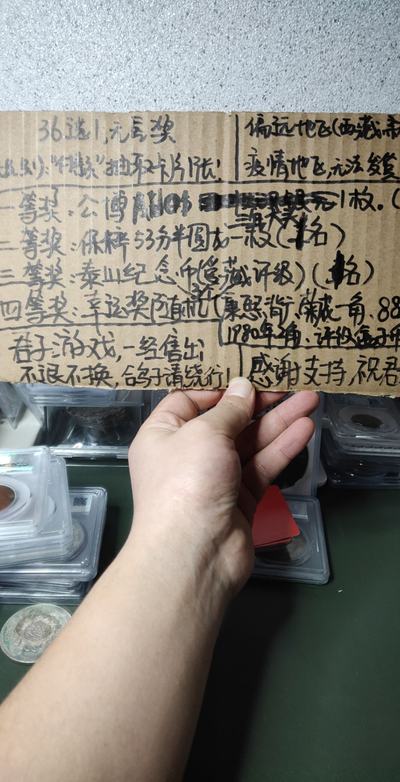 36选1,无盲奖
抽取卡片1张!
偏远地区(西藏,
疫情地区,无法发货
一等奖:公博 1枚。(
二等奖:保粹53分半圆龙一枚(1名)
三等奖:泰山纪念币(爱藏评级)(1名)
四等奖:幸运奖随机(
荣藏一角,88
1980年2角,评级盒子币
君子游戏,一经售出
不退不换,鸽子请绕行!
感谢支持,祝君